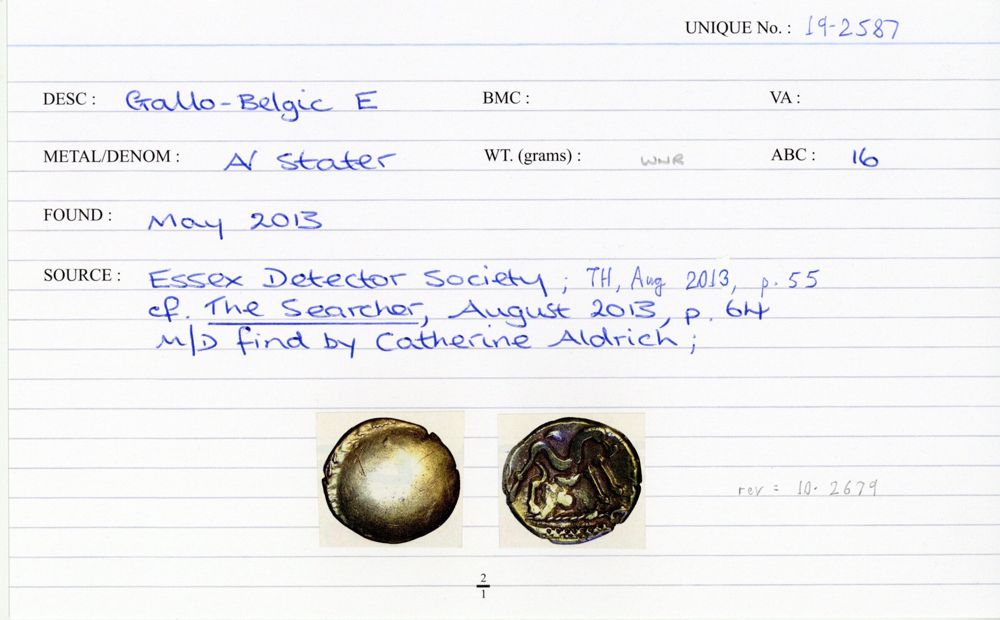 UNIQUE No. : 19-2587
DESC : Gallo-Belgic E BMC : VA :
METAL/DENOM : A/ Stater WT. (grams) : WNR ABC : 16
FOUND : May 2013
SOURCE : Essex Detector Society ; TH, Aug 2013, p. 55
cf. The Searcher, August 2013, p. 64
M/D find by Catherine Aldrich ;
rev = 10. 2679
2
1